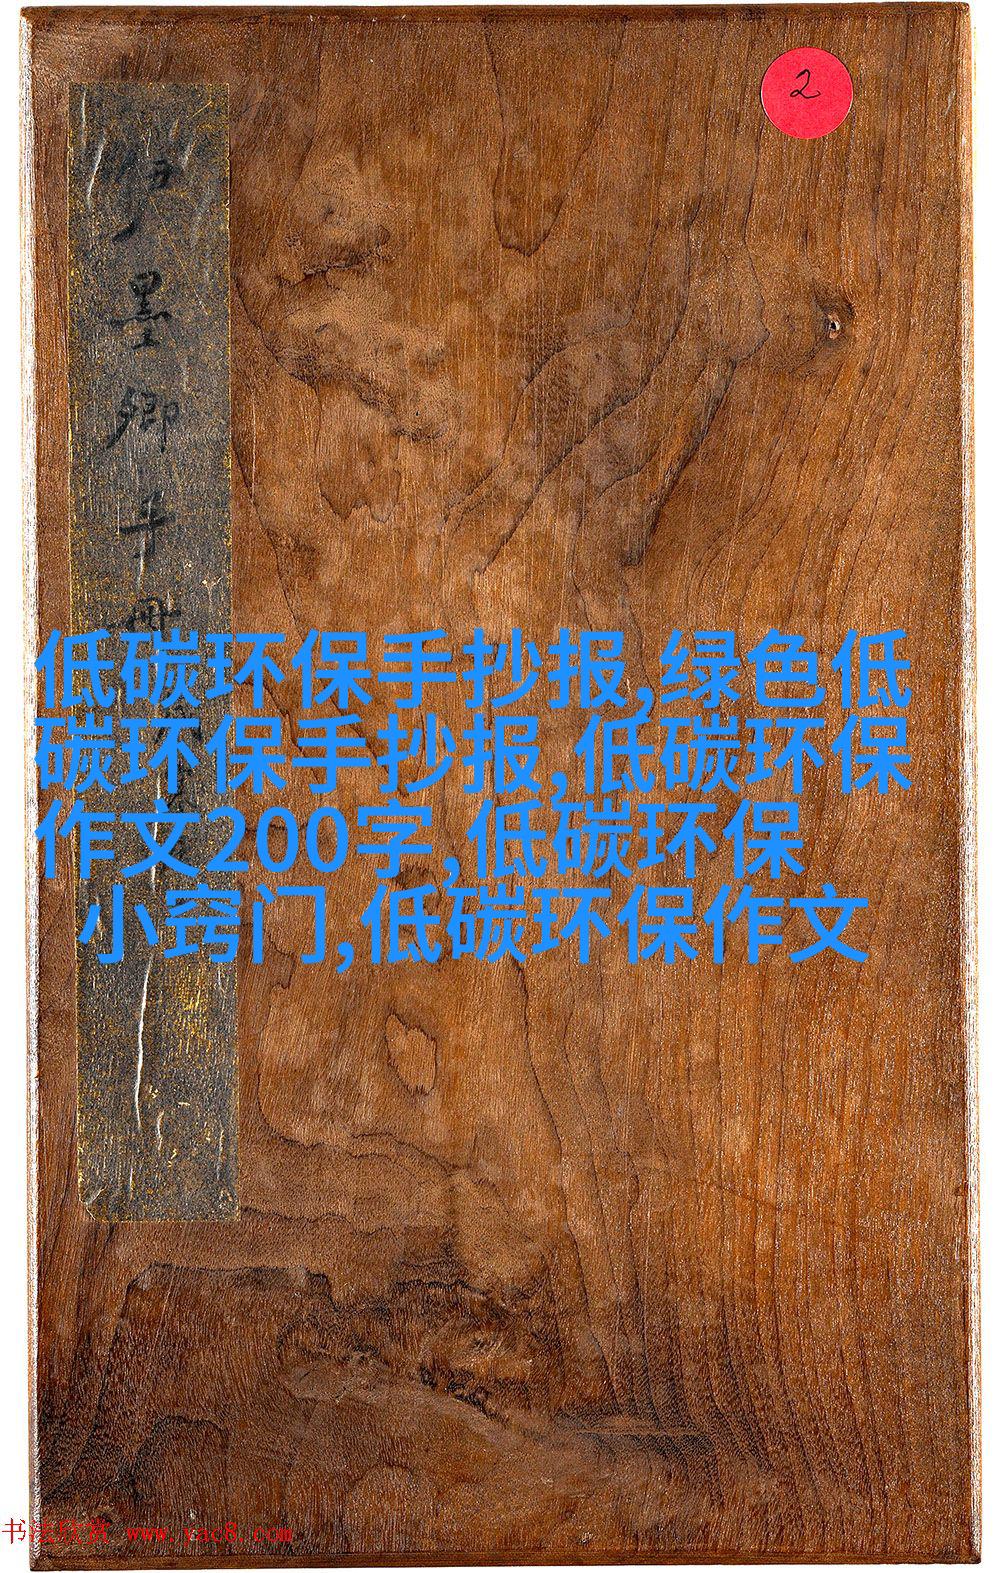 2
墨卿手冊
低碳环保手抄报,绿色低
碳环保手抄报,低碳环保
作文200字,低碳环保
小窍门,低碳环保作文
书法欣赏 www.yac8.com